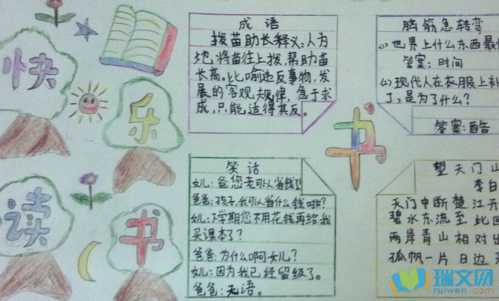 快
乐
读
书
成语
拔苗助长释义:人为
地将苗往上拔,帮助苗
长高。比喻违反事物,发
展的客观规律,急于求
成,只能,适得其反。
脑筋急转弯
(1)世界上什么东西最
答案:时间
(2)现代人在衣服上
了,是为了什么?
答案:酷
书
笑话
女儿:爸您
爸爸:孩子,我可以省什么钱
女儿:下学期您不用花钱再给我
买课本了?
爸爸:为什么啊女儿?
女儿:因为我已经留级了。
爸爸:无语。
望天门山
李
天门中断楚江开
碧水东流至此回
两岸青山相对出
孤帆一片日边
瑞文网
ruiwen.com